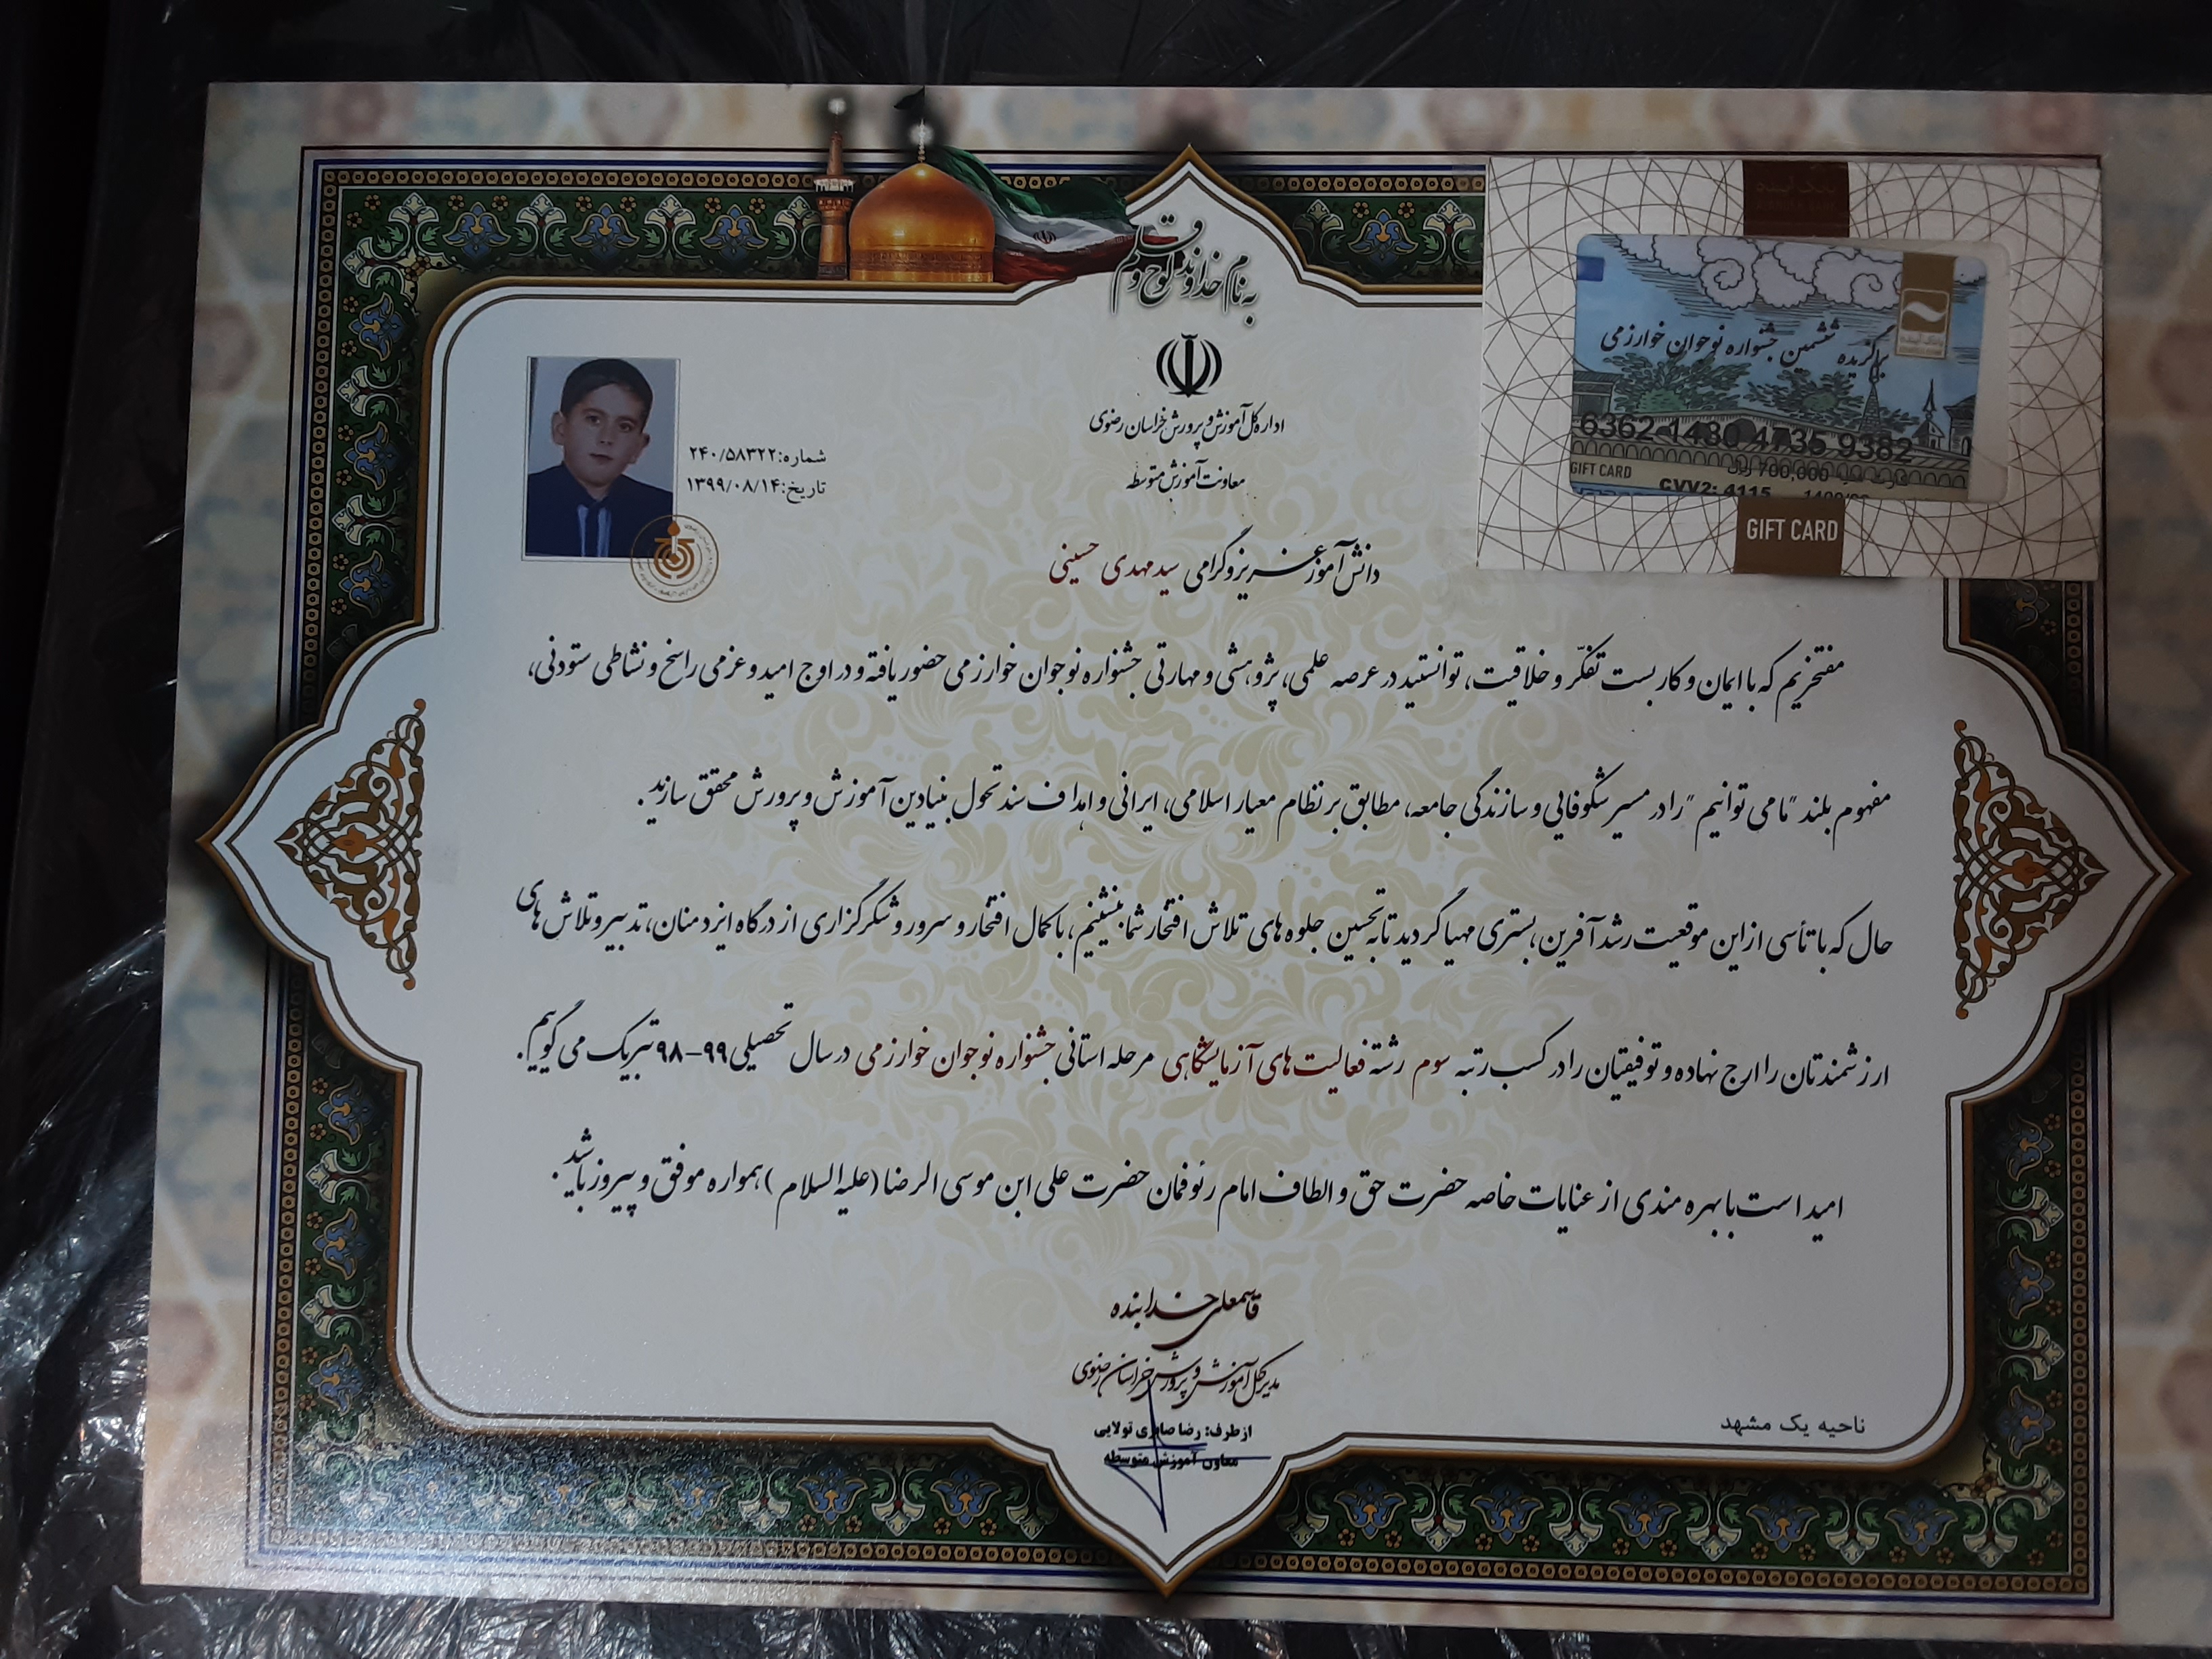 به نام خداوند لوح و قلم
اداره کل آموزش و پرورش خراسان رضوی
معاونت آموزش متوسطه
شماره: ۲۴۰/۵۸۳۲۲
تاریخ: ۱۳۹۹/۰۸/۱۴
بانک آینده
برگزیده ششمین جشنواره نوجوان خوارزمی
بانک آینده
6362 1480 4735 9382
GIFT CARD
700,000 ریال
CVV2: 4115
GIFT CARD
دانش آموز عزیز و گرامی سید مهدی حسینی
مفتخریم که با ایمان و کاربست تفکّر و خلاقیت، توانستید در عرصه علمی، پژوهشی و مهارتی جشنواره نوجوان خوارزمی حضور یافته و در اوج امید و عزمی راسخ و نشاطی ستودنی،
مفهوم بلند "ما می توانیم" را در مسیر شکوفایی و سازندگی جامعه، مطابق بر نظام معیار اسلامی، ایرانی و اهداف سند تحول بنیادین آموزش و پرورش محقق سازید.
حال که با تأسی از این موقعیت رشد آفرین، بستری مهیا گردید تا به تحسین جلوه های تلاش افتخار شما بنشینیم، با کمال افتخار و سرور و شکرگزاری از درگاه ایزد منان، تدبیر و تلاش های
ارزشمندتان را ارج نهاده و توفیقتان را در کسب رتبه سوم رشته فعالیت های آزمایشگاهی مرحله استانی جشنواره نوجوان خوارزمی در سال تحصیلی ۹۹-۹۸ تبریک می گوییم.
امید است با بهره مندی از عنایات خاصه حضرت حق و الطاف امام رئوفمان حضرت علی ابن موسی الرضا (علیه السلام) همواره موفق و پیروز باشید.
قاسمعلی خدابنده
مدیرکل آموزش و پرورش خراسان رضوی
از طرف: رضا صابری تولایی
معاون آموزش متوسطه
ناحیه یک مشهد